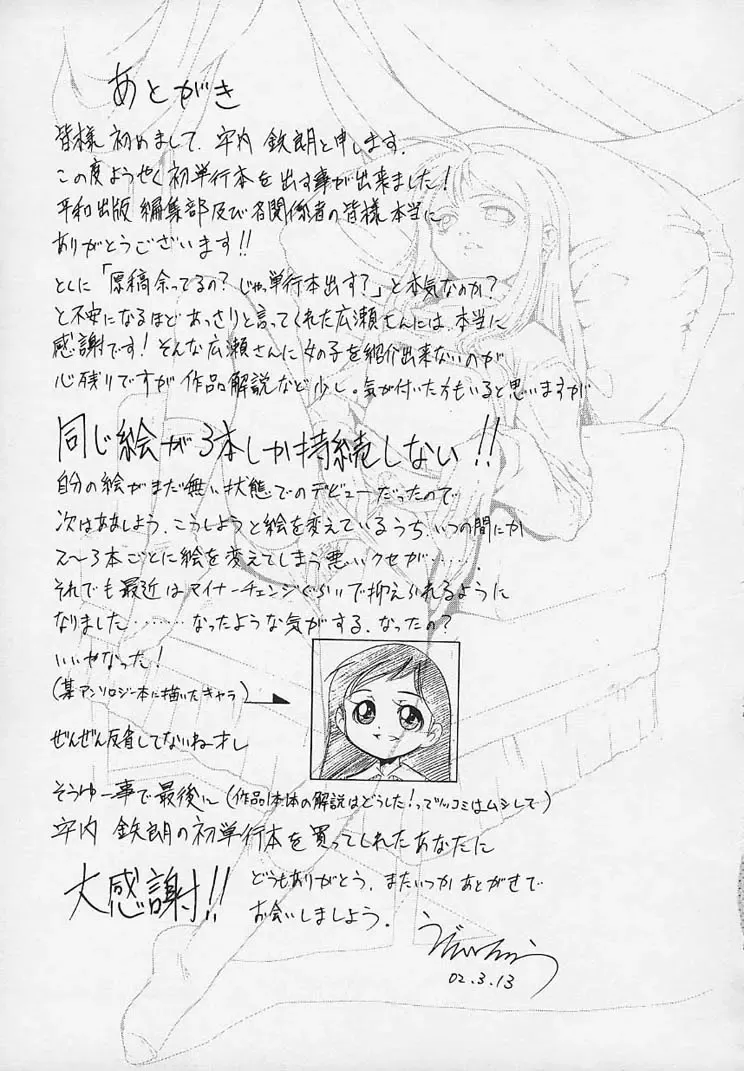 あとがき
皆様 初めまして、宇内 鉄朗と申します。
この度ようやく初単行本を出す事が出来ました!
平和出版 編集部及び各関係者の皆様本当に
ありがとうございます!!
とくに「原稿余ってるの?じゃっ単行本出す?」と本気なのか?
と不安になるほどあっさりと言ってくれた広瀬さんには本当に
感謝です!そんな広瀬さんに女の子を紹介出来ないのが
心残りですが作品解説など少し。気が付いた方もいると思いますが
同じ絵が3本しか持続しない!!
自分の絵がまだ無い状態でのデビューだったので
次はああしよう、こうしようと絵を変えているうち、いつの間にか
2〜3本ごとに絵を変えてしまう悪いクセが………。
それでも最近はマイナーチェンジぐらいで抑えられるように
なりました………なったような気がする、なったの?
いいやなった!
(某アンソロジー本に描いたキャラ)
ぜんぜん反省してないねオレ
そうゆー事で最後に(作品本体の解説はどうした!ってツッコミはムシして)
宇内 鉄朗の初単行本を買ってくれたあなたに
大感謝!!
どうもありがとう、またいつかあとがきで
お会いしましょう。
02.3.13